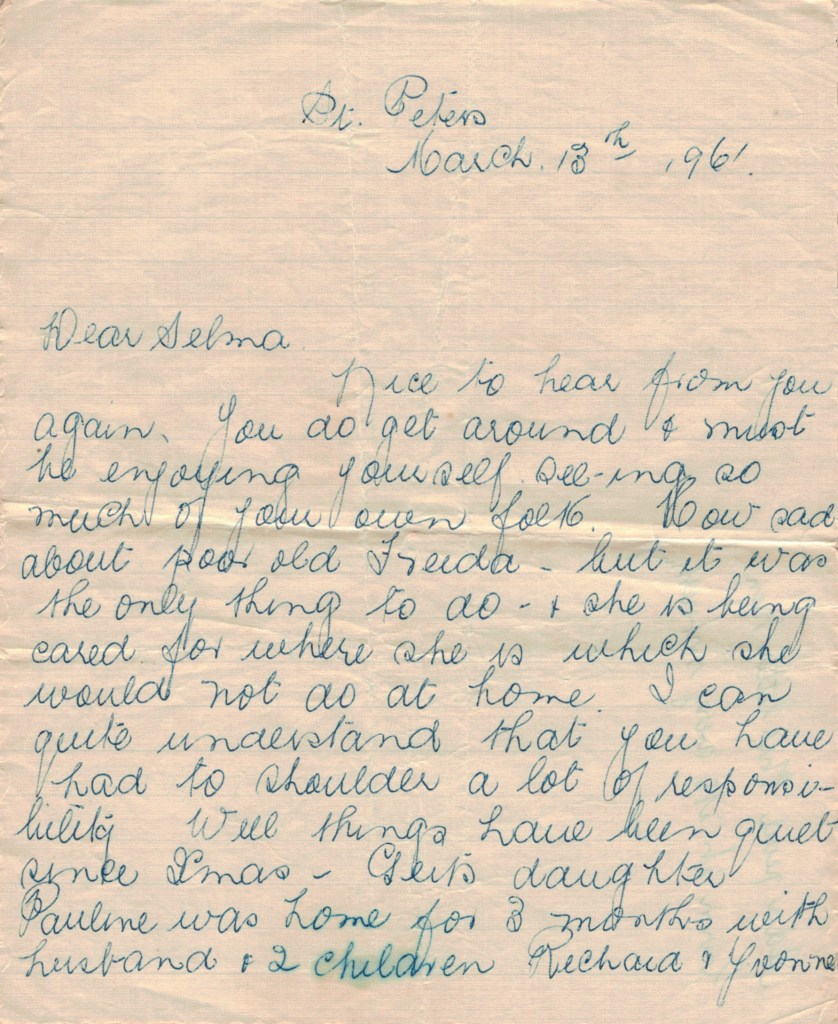 St. Peters
March. 13th 1961.
Dear Selma.
Nice to hear from you
again. You do get around & must
be enjoying yourself see-ing so
much of your own folk. How sad
about poor old Freida - but it was
the only thing to do - & she is being
cared for where she is which she
would not do at home. I can
quite understand that you have
had to shoulder a lot of responsi-
bility Well things have been quiet
since Xmas - Gert's daughter
Pauline was home for 3 months with
husband & 2 children Richard & Yvonne